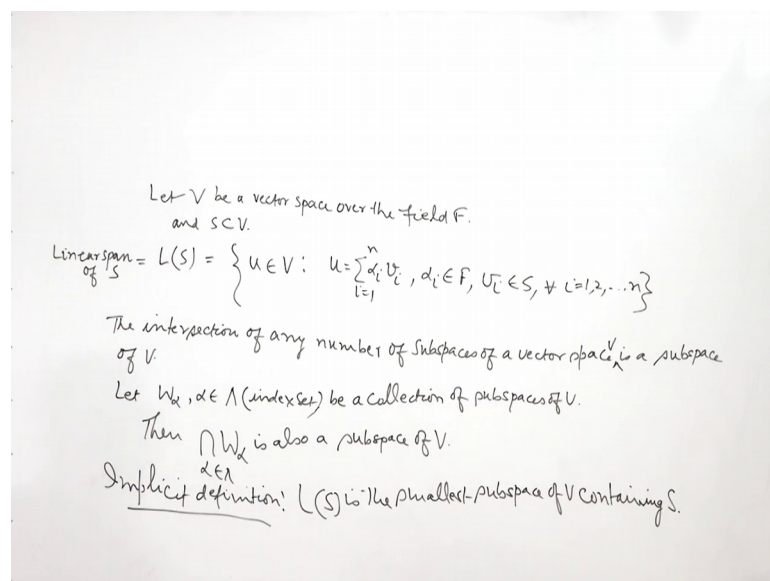 Let V be a vector space over the field F.
and S⊂V.
Linear span of S = L(S) = { u∈V : u = ∑_{i=1}^{n} α_i v_i , α_i ∈ F, v_i ∈ S, ∀ i=1,2,...n }
The intersection of any number of subspaces of a vector space V is a subspace
of V.
Let W_α , α∈Λ (index set) be a collection of subspaces of V.
Then ⋂_{α∈Λ} W_α is also a subspace of V.
Implicit definition: L(S) is the smallest subspace of V containing S.